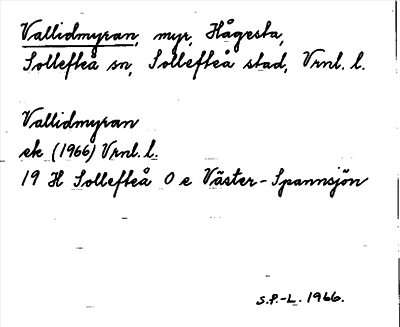 Vallidmyran, myr, Hågesta,
Sollefteå sn, Sollefteå stad, Vrnl. l.
Vallidmyran
ek (1966) Vrnl. l.
19 H Sollefteå O e Väster-Spannsjön
S.P.-L. 1966.